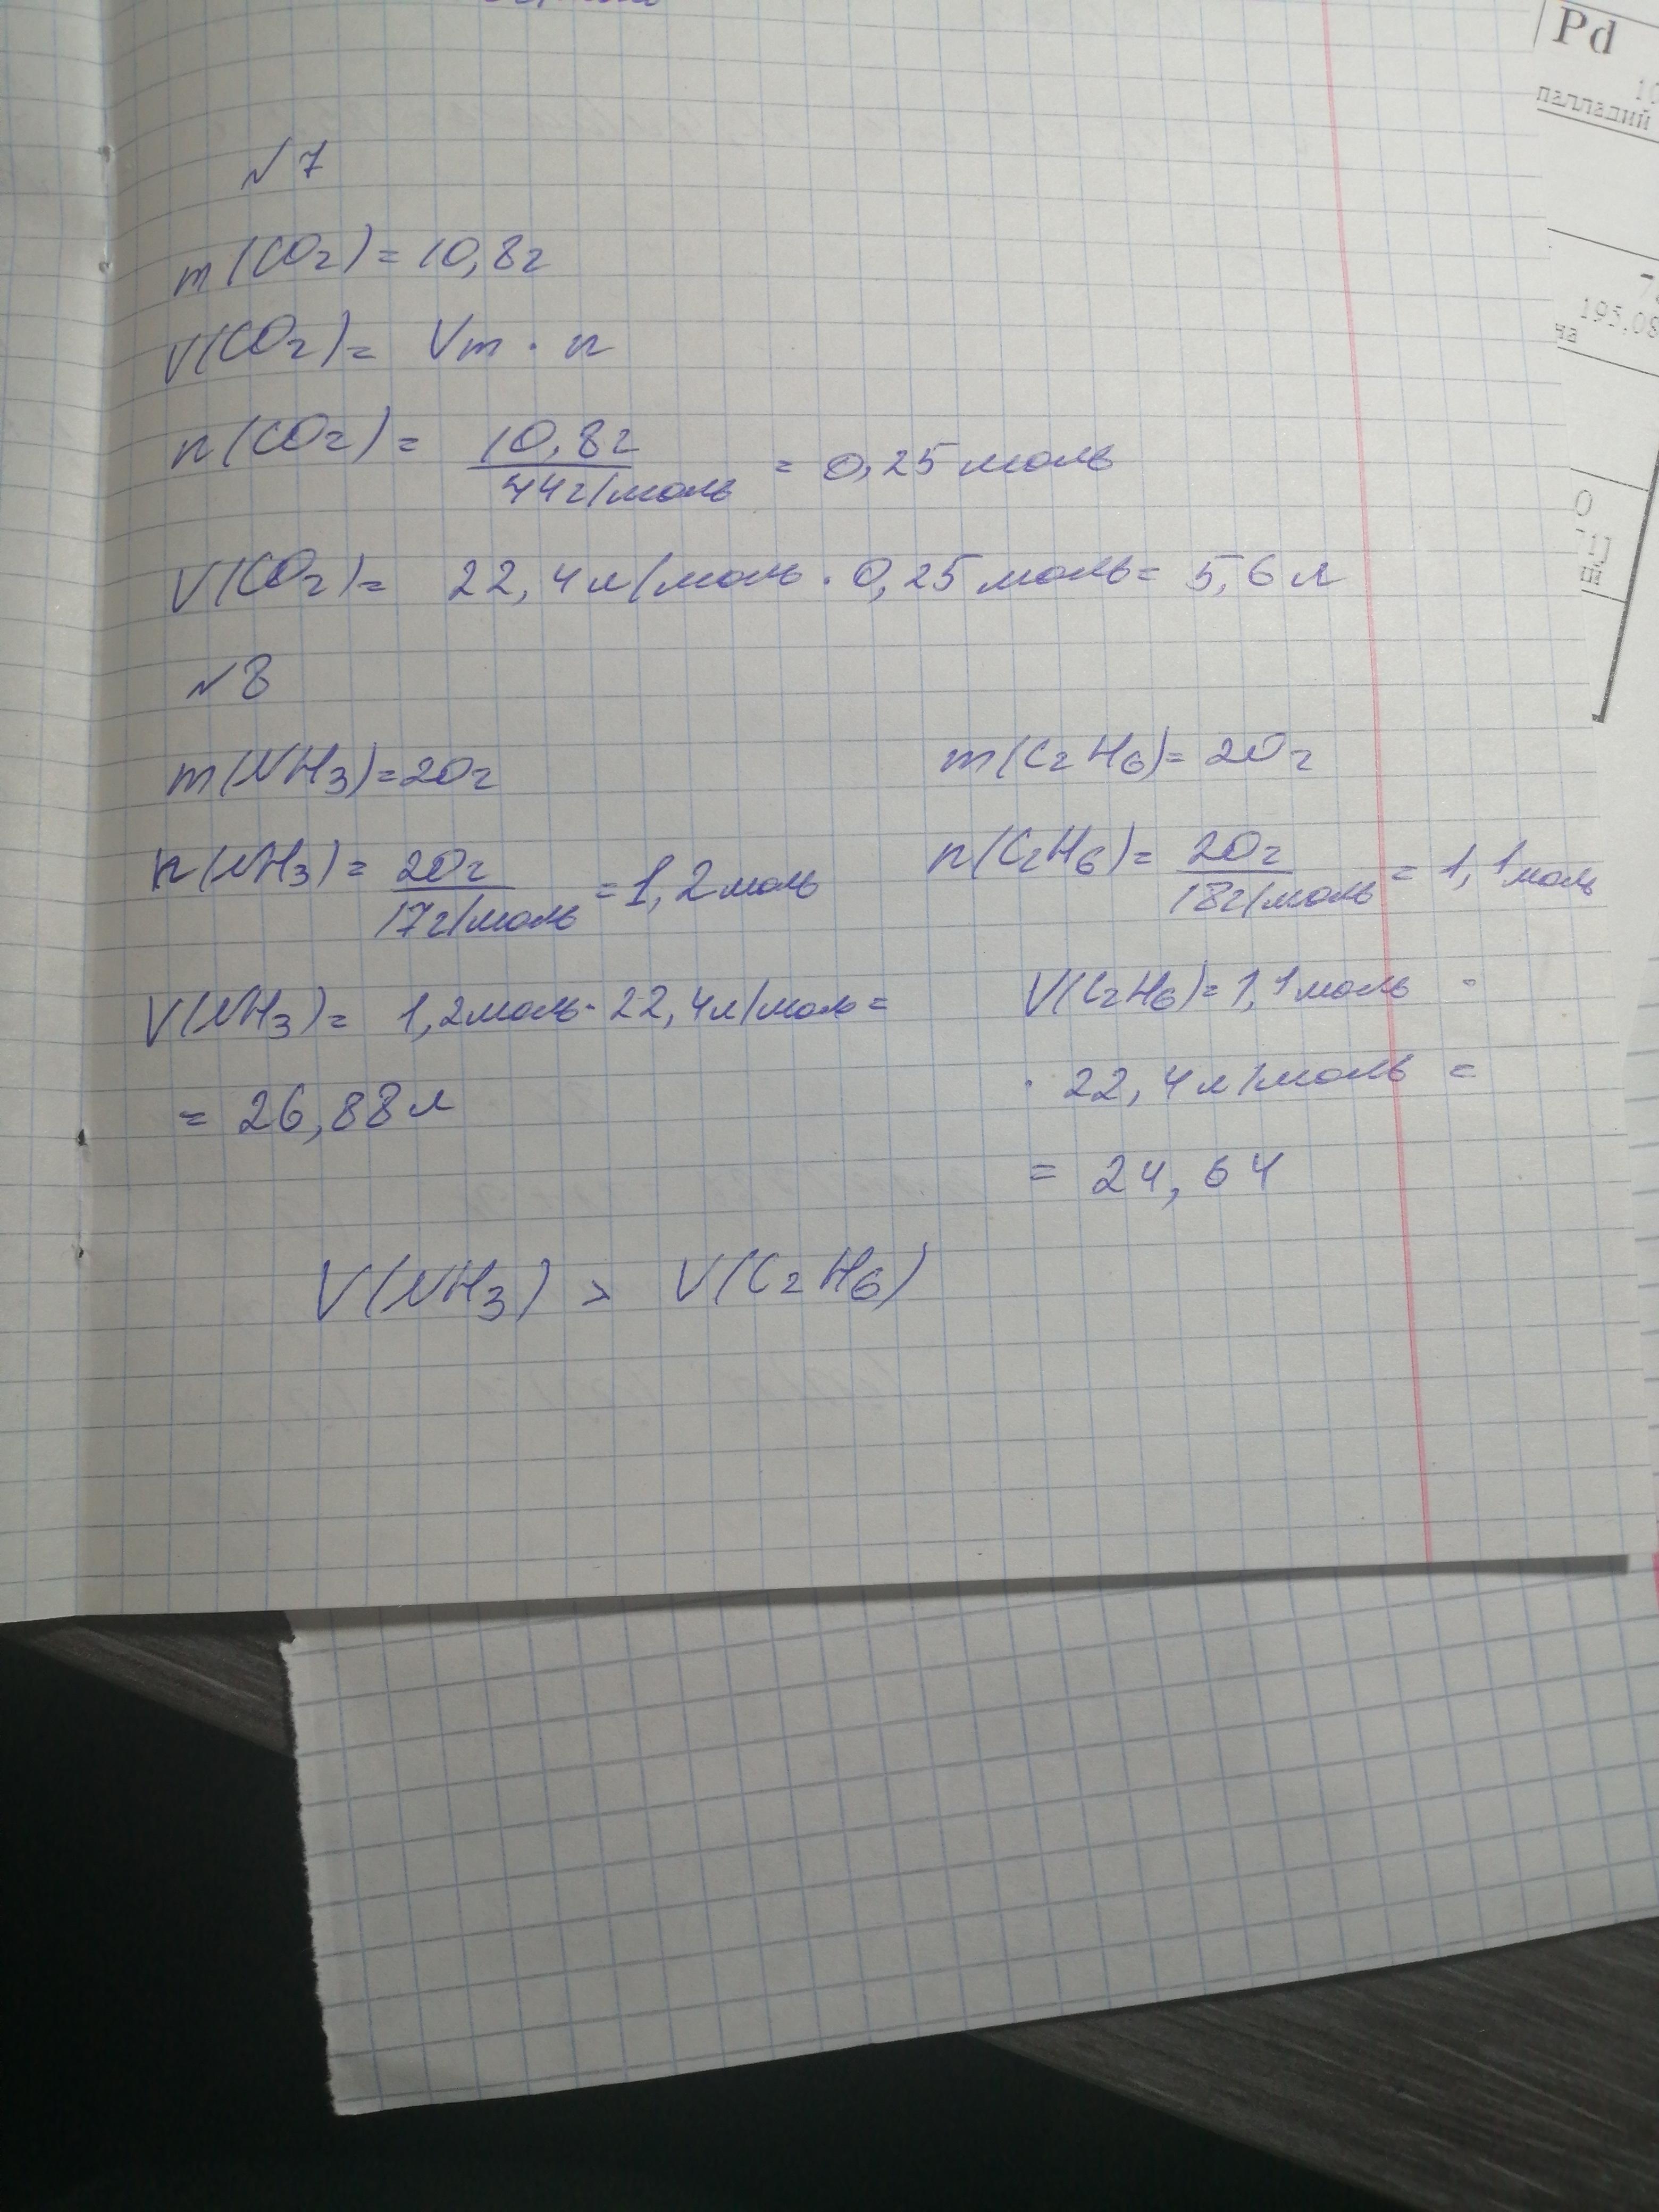 Pd
палладий
195,08
на
№7
m(CO2) = 10,8г
V(CO2) = Vm · n
n(CO2) = 10,8г / 44г/моль = 0,25 моль
V(CO2) = 22,4 л/моль · 0,25 моль = 5,6 л
№8
m(NH3) = 20г
n(NH3) = 20г / 17г/моль = 1,2 моль
V(NH3) = 1,2 моль · 22,4 л/моль =
= 26,88 л
m(C2H6) = 20г
n(C2H6) = 20г / 18г/моль = 1,1 моль
V(C2H6) = 1,1 моль ·
· 22,4 л/моль =
= 24,64
V(NH3) > V(C2H6)